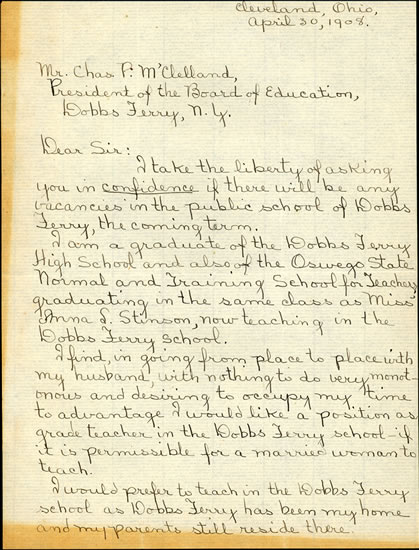 Cleveland, Ohio,
April 30, 1908.
Mr. Chas. P. McClelland,
President of the Board of Education,
Dobbs Ferry, N.Y.
Dear Sir:
I take the liberty of asking
you in confidence if there will be any
vacancies in the public school of Dobbs
Ferry, the coming term.
I am a graduate of the Dobbs Ferry
High School and also of the Oswego State
Normal and Training School for Teachers
graduating in the same class as Miss
Anna S. Stinson, now teaching in the
Dobbs Ferry school.
I find, in going from place to place with
my husband, with nothing to do very monot-
onous and desiring to occupy my time
to advantage I would like a position as
grade teacher in the Dobbs Ferry school-if
it is permissible for a married woman to
teach.
I would prefer to teach in the Dobbs Ferry
school as Dobbs Ferry has been my home
and my parents still reside there.